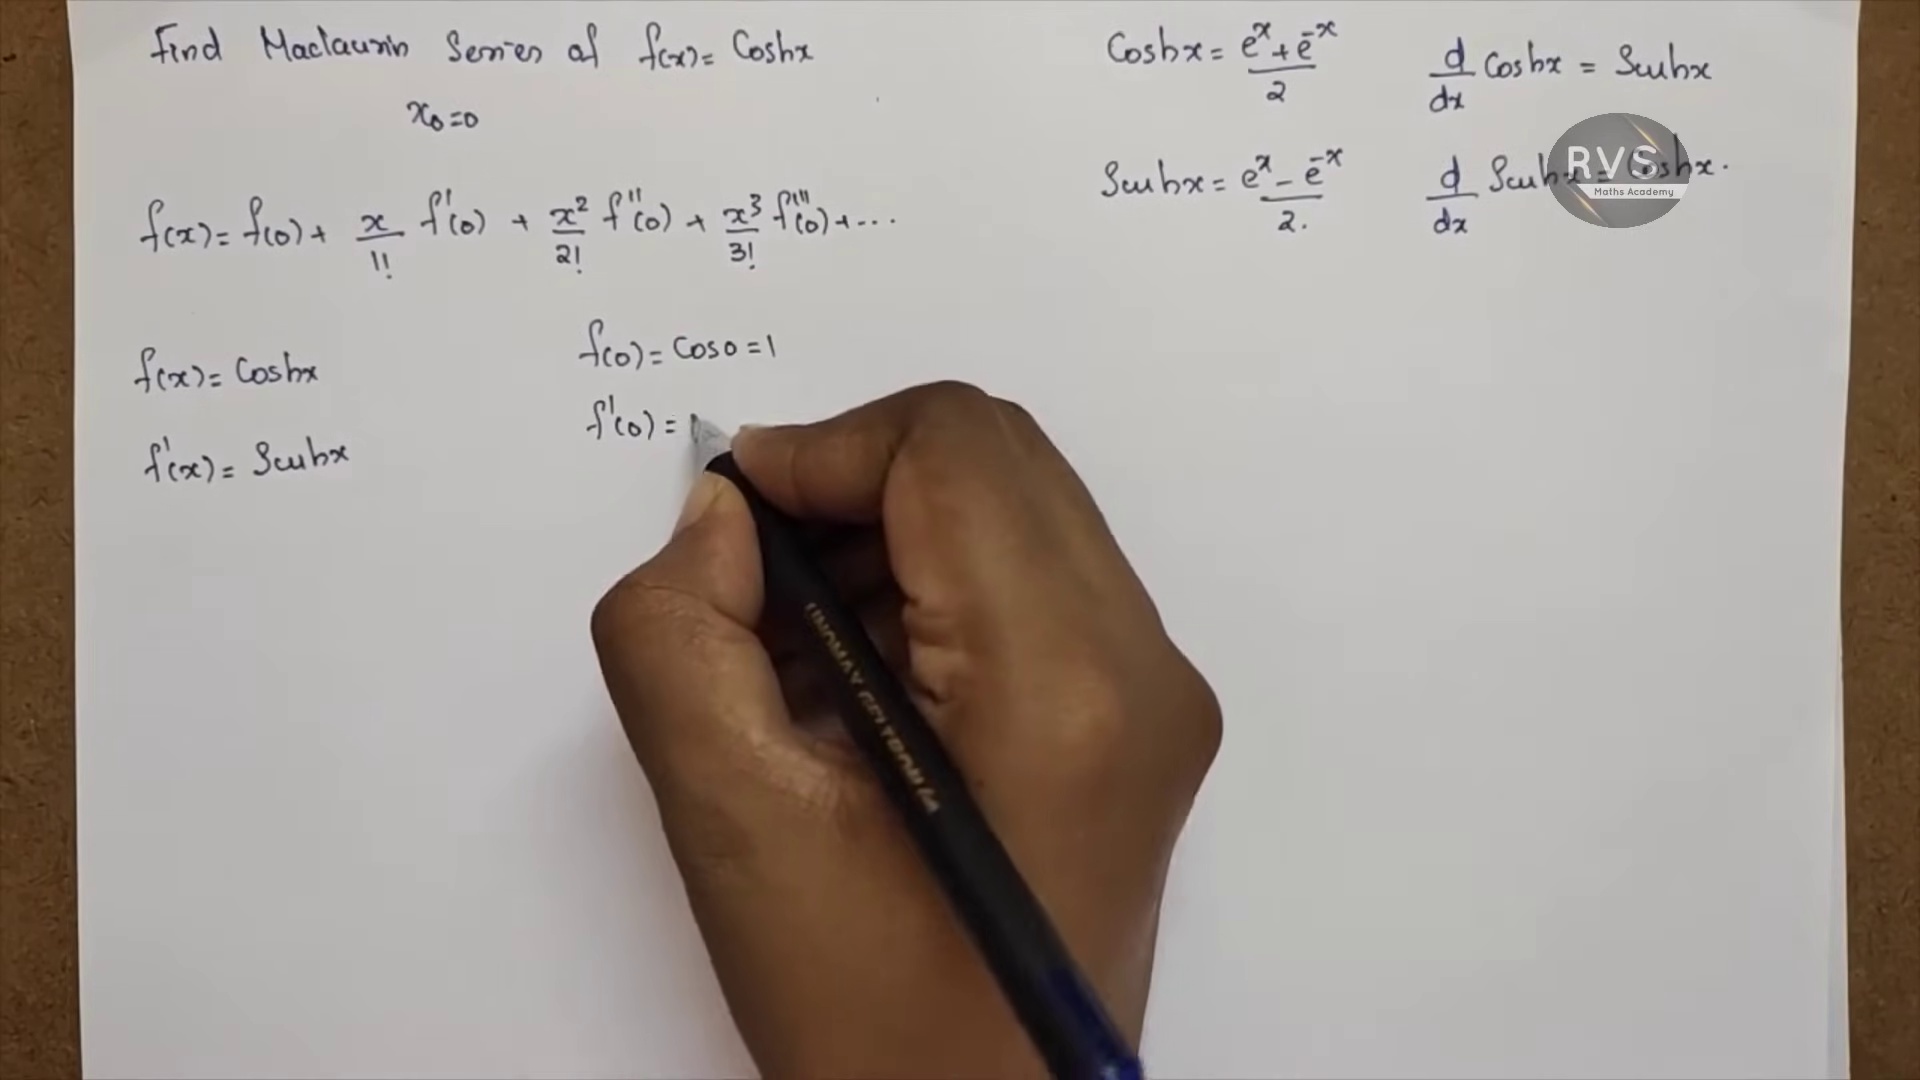 Find Maclaurin Series of f(x) = Coshx
x₀=0
f(x) = f(0) + x/1! f'(0) + x²/2! f''(0) + x³/3! f'''(0) + ...
f(x) = Coshx
f'(x) = Sinhx
f(0) = Cos0 = 1
f'(0) =
Coshx = (eˣ + e⁻ˣ)/2
d/dx Coshx = Sinhx
Sinhx = (eˣ - e⁻ˣ)/2.
d/dx Sinhx = Coshx.
RVS
Maths Academy
UNOMAX GELTRON